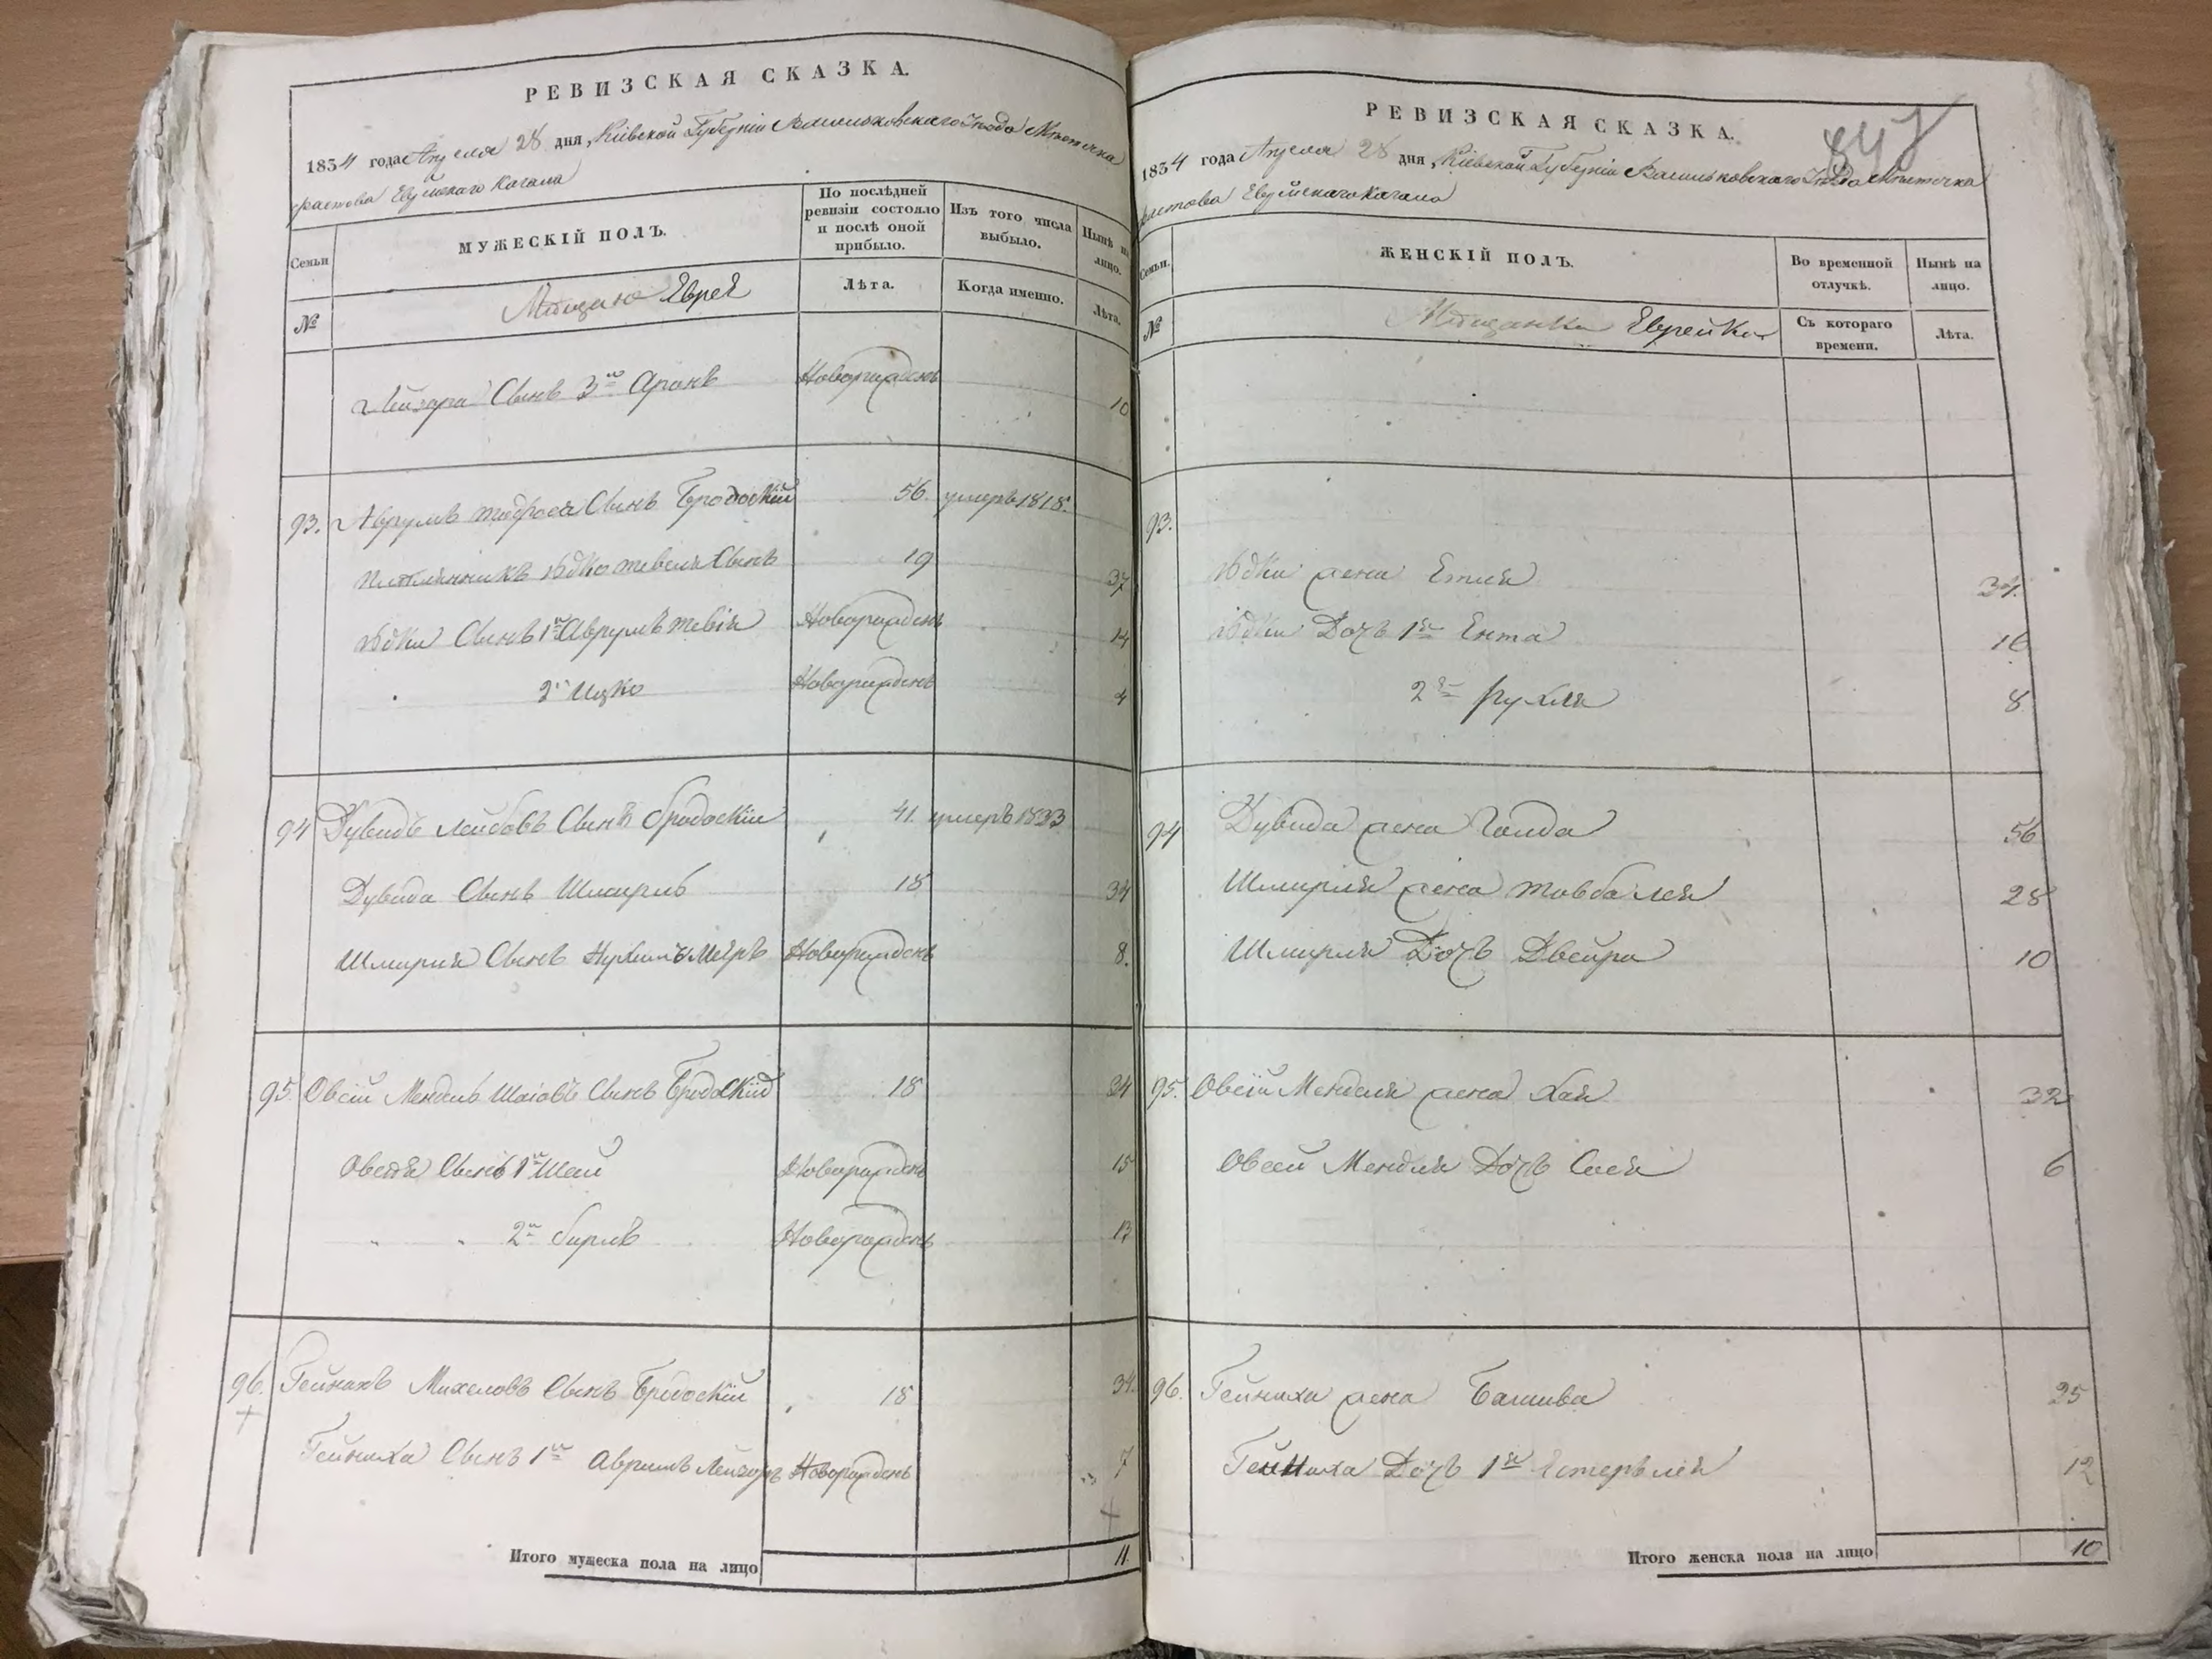 РЕВИЗСКАЯ СКАЗКА.
1834 года Апреля 28 дня, Кіевской Губерніи Васильковскаго Уезда Местечка
Фастова Еврейскаго Кагала
Семьи
МУЖЕСКІЙ ПОЛЪ.
По послѣдней ревизіи состояло и послѣ оной прибыло.
Изъ того числа выбыло.
Нынѣ на лицо.
№
Мещане Евреи
Лѣта.
Когда именно.
Лѣта.
Лейзора Сынъ 3й Аронъ Новорожденъ 10
93. Аврумъ Тодроса Сынъ Бродоскій 56. умеръ 1818.
Племянникъ Юдко Тевеля Сынъ 19 37
Юдки Сынъ 1й Аврумъ Тевія Новорожденъ 14
2й Ицко Новорожденъ 4
94 Дувидъ Лейбовъ Сынъ Бродоскій 41. умеръ 1833
Дувида Сынъ Шмириъ 18 34
Шмирия Сынъ Нухимъ Меіръ Новорожденъ 8.
95. Овсій Мендель Шаіовъ Сынъ Бродоскій 18 34
Овсея Сынъ 1й Шая Новорожденъ 15
2й Бирлъ Новорожденъ 13
96. Гейнихъ Михеловъ Сынъ Бродоскій 18 34.
Гейниха Сынъ 1й Аврумъ Лейзоръ Новорожденъ 7
Итого мужеска пола на лицо 11.
РЕВИЗСКАЯ СКАЗКА.
847
1834 года Апреля 28 дня, Кіевской Губерніи Васильковскаго Уезда Местечка
Фастова Еврейскаго Кагала
Семьи.
ЖЕНСКІЙ ПОЛЪ.
Во временной отлучкѣ.
Нынѣ на лицо.
№
Мещанки Еврейки
Съ котораго времени.
Лѣта.
93.
Юдки жена Етля 34.
Юдки Дочъ 1я Ента 16
2я Рухля 8
94 Дувида жена Голда 56
Шмирия жена Товба Лея 28
Шмирия Дочъ Двейра 10
95. Овсій Менделя жена Хая 32
Овсей Менделя Дочъ Сося 6
96. Гейниха жена Башива 25
Гейниха Дочъ 1я Естеръ Лея 12
Итого женска пола на лицо 10